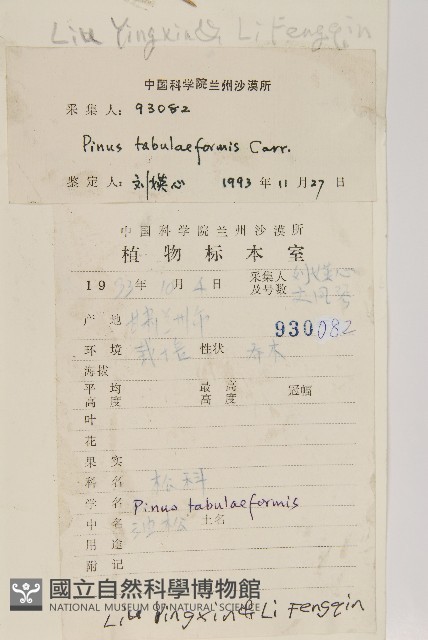 Liu Yingxin & Li Fengqin
中国科学院兰州沙漠所
采集人: 93082
Pinus tabulaeformis Carr.
鉴定人: 刘媖心 1993 年 11 月 27 日
中国科学院兰州沙漠所
植物标本室
1993年 10月 4日 采集人 刘媖心
及号数
产 地 甘肃兰州市 930082
环 境 性状 乔木
海拔
平均高度 最高高度 冠幅
叶
花
果 实
科 名 松科
学 名 Pinus tabulaeformis
中 名 油松 土名
用 途
附 记
國立自然科學博物館
NATIONAL MUSEUM OF NATURAL SCIENCE
Liu Yingxin & Li Fengqin